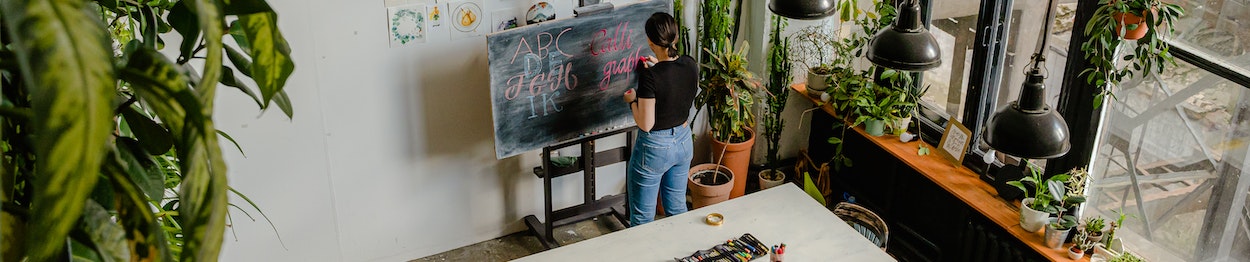 ABC
DEF
JGH
IK
Calli
graph